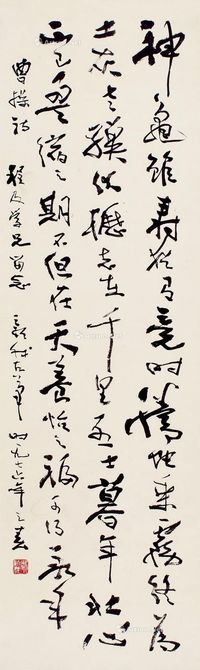 神龜雖壽猶有竟時騰蛇乘霧終為
土灰老驥伏櫪志在千里烈士暮年壯心
不已盈縮之期不但在天養怡之福可得永年
曹操詩 程及學兄留念 時一九七六年之春